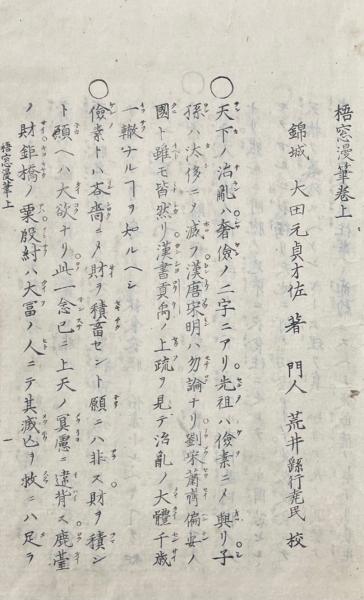 梧窓漫筆巻上
錦城 大田元貞才佐 著 門人 荒井繇行尭民 校
○天下ノ治亂ハ奢儉ノ二字ニアリ先祖ハ儉素ニメ興リ子
孫ハ汰侈ニメ滅フ漢唐宋明ハ勿論ナリ劉宋蕭齊偏安ノ
國ト雖モ皆然リ漢書貢禹ノ上疏ヲ見テ治亂ノ大體千歳
一轍ナルヿヲ知ルヘシ
○儉素トハ吝嗇ニメ財ヲ積畜セント願ニハ非ス財ヲ積ン
ト願ヘハ大欲ナリ此一念已ニ上天ノ冥慮ニ違背ス鹿臺
ノ財鉅橋ノ粟殷紂ハ大冨ノ人ニテ其滅亡ヲ救ニハ足ラ
梧窓漫筆上
一